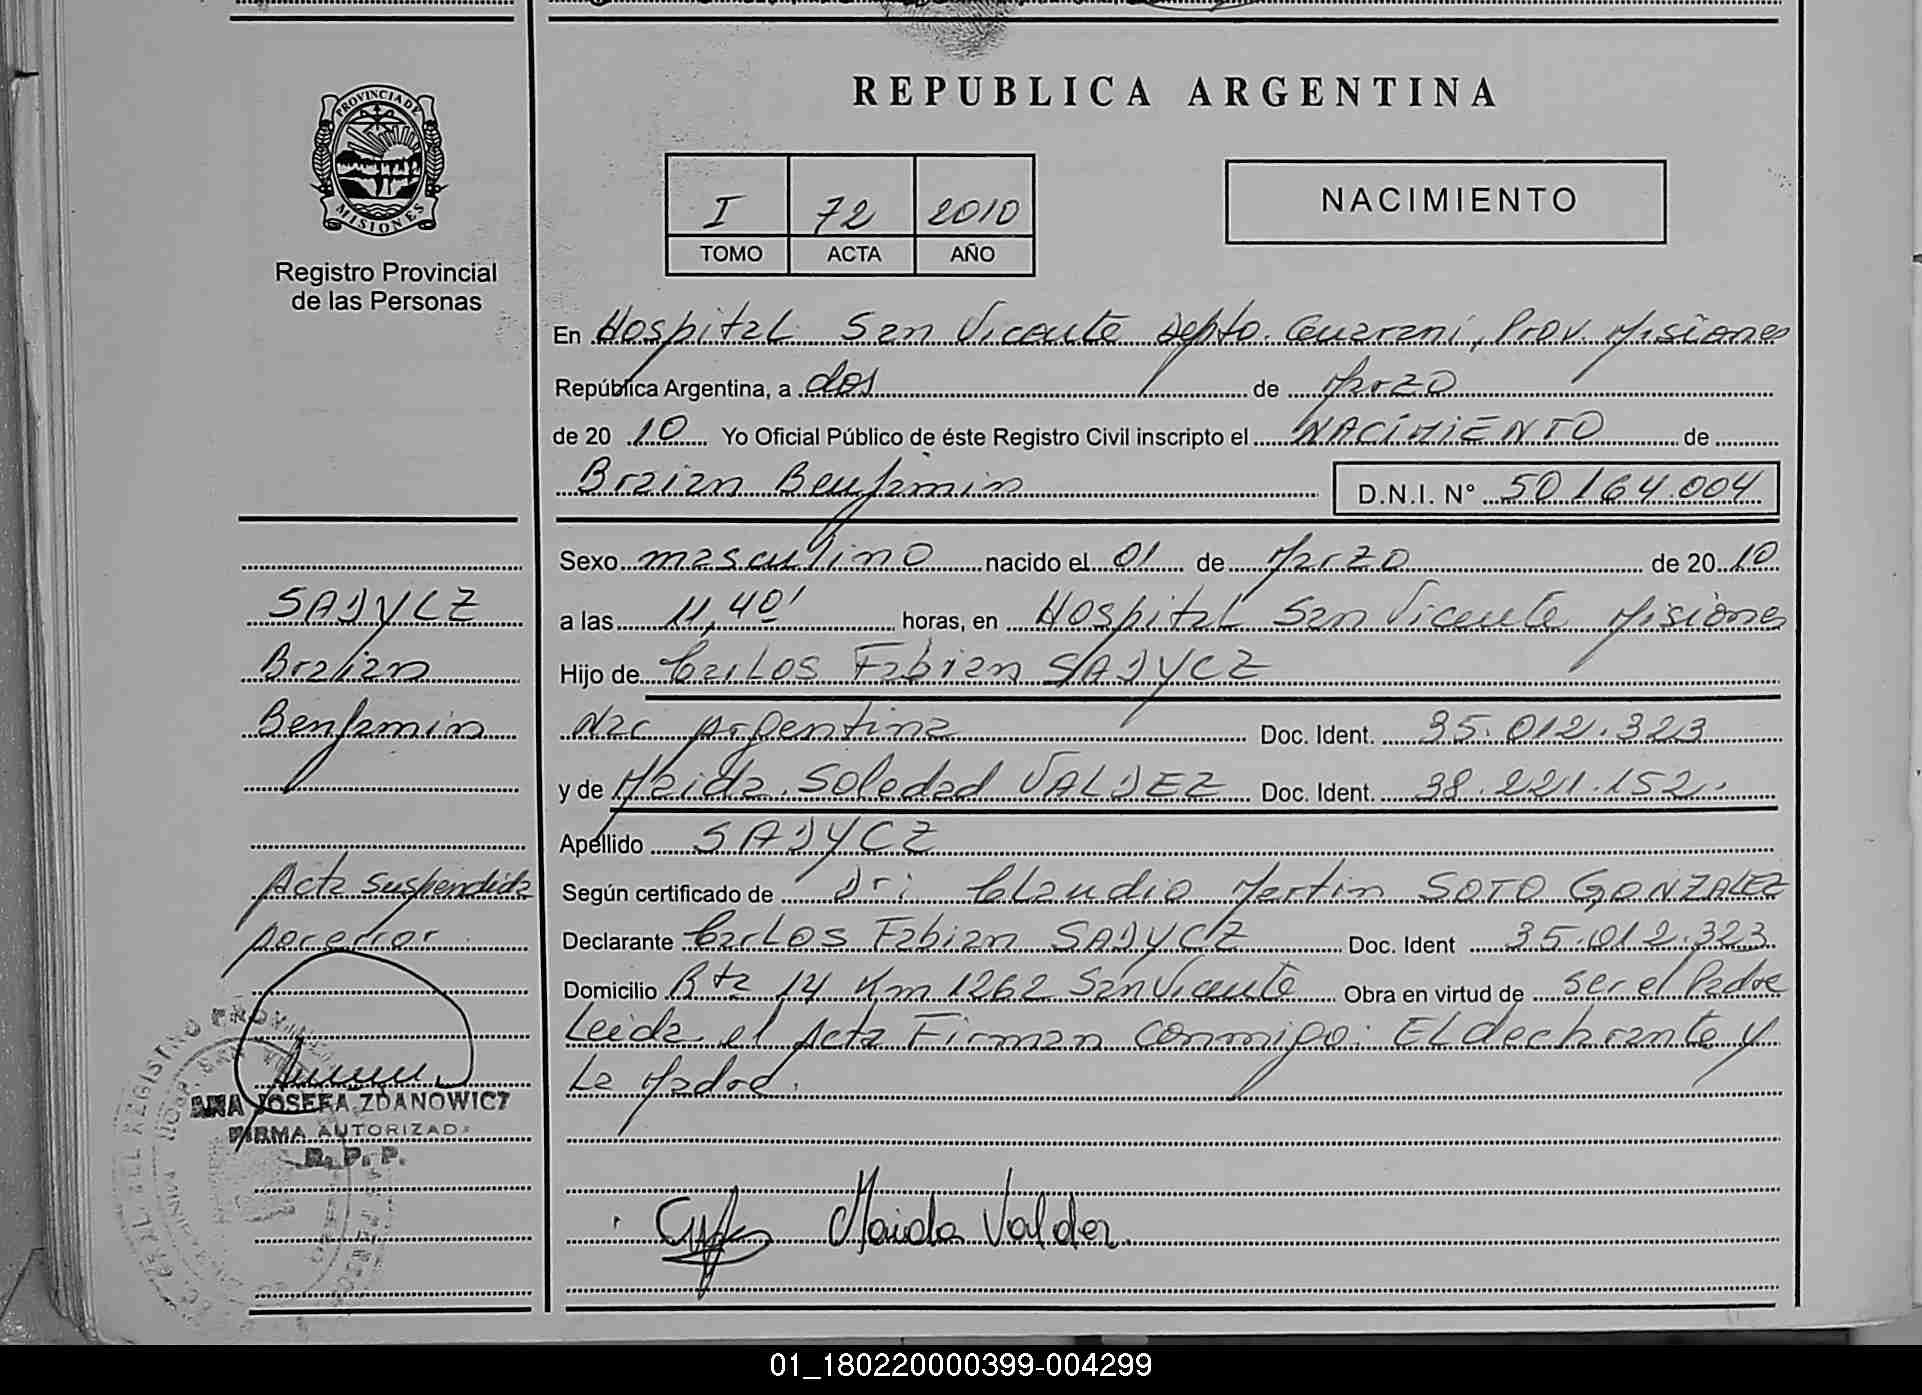 REPUBLICA ARGENTINA
PROVINCIA DE
MISIONES
Registro Provincial
de las Personas
I 72 2010
TOMO ACTA AÑO
NACIMIENTO
En Hospital San Vicente Depto. Guarani, Prov. Misiones
República Argentina, a dos de Marzo
de 20 10 Yo Oficial Público de éste Registro Civil inscripto el NACIMIENTO de
Braian Benjamin D.N.I. N° 50.164.004
Sexo masculino nacido el 01 de Marzo de 20 10
a las 11,40' horas, en Hospital San Vicente Misiones
Hijo de Carlos Fabian SADYCZ
Nac Argentina Doc. Ident. 35.012.323
y de Maida Soledad VALDEZ Doc. Ident. 38.221.152
Apellido SADYCZ
Según certificado de Dr: Claudio Martin SOTO GONZALEZ
Declarante Carlos Fabian SADYCZ Doc. Ident 35.012.323
Domicilio Rta 14 Km 1262 San Vicente Obra en virtud de ser el Padre
Leida el Acta Firman conmigo: El declarante y
La Madre.
Maida Valdez
SADYCZ
Braian
Benjamin
Acta suspendida
por error
ANA JOSEFA ZDANOWICZ
FIRMA AUTORIZADA
R. P. P.
01_180220000399-004299